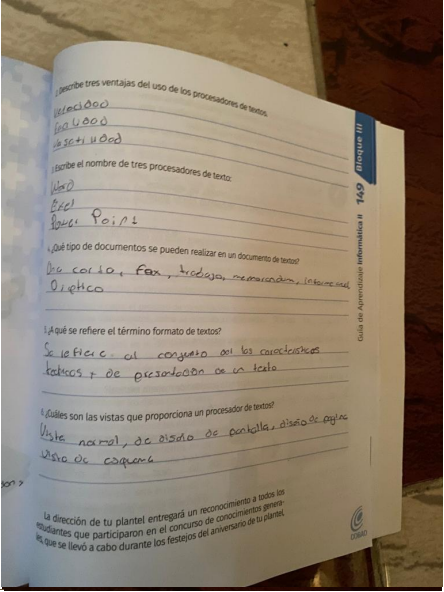 2. Describe tres ventajas del uso de los procesadores de textos.
Velocidad
Facilidad
3. Escribe el nombre de tres procesadores de texto:
Word
Exel
Power Point
4. ¿Qué tipo de documentos se pueden realizar en un documento de textos?
Una carta, Fax, trabajo, memorandum,
5. ¿A qué se refiere el término formato de textos?
Se refiere al conjunto de las características
tecnicos y de presentación de un texto
6. ¿Cuáles son las vistas que proporciona un procesador de textos?
Vista normal, de diseño de pantalla, diseño de pagina
Vista de esquema
La dirección de tu plantel entregará un reconocimiento a todos los
estudiantes que participaron en el concurso de conocimientos genera-
les, que se llevó a cabo durante los festejos del aniversario de tu plantel,
Guía de Aprendizaje Informática II 149 Bloque III
COBAO